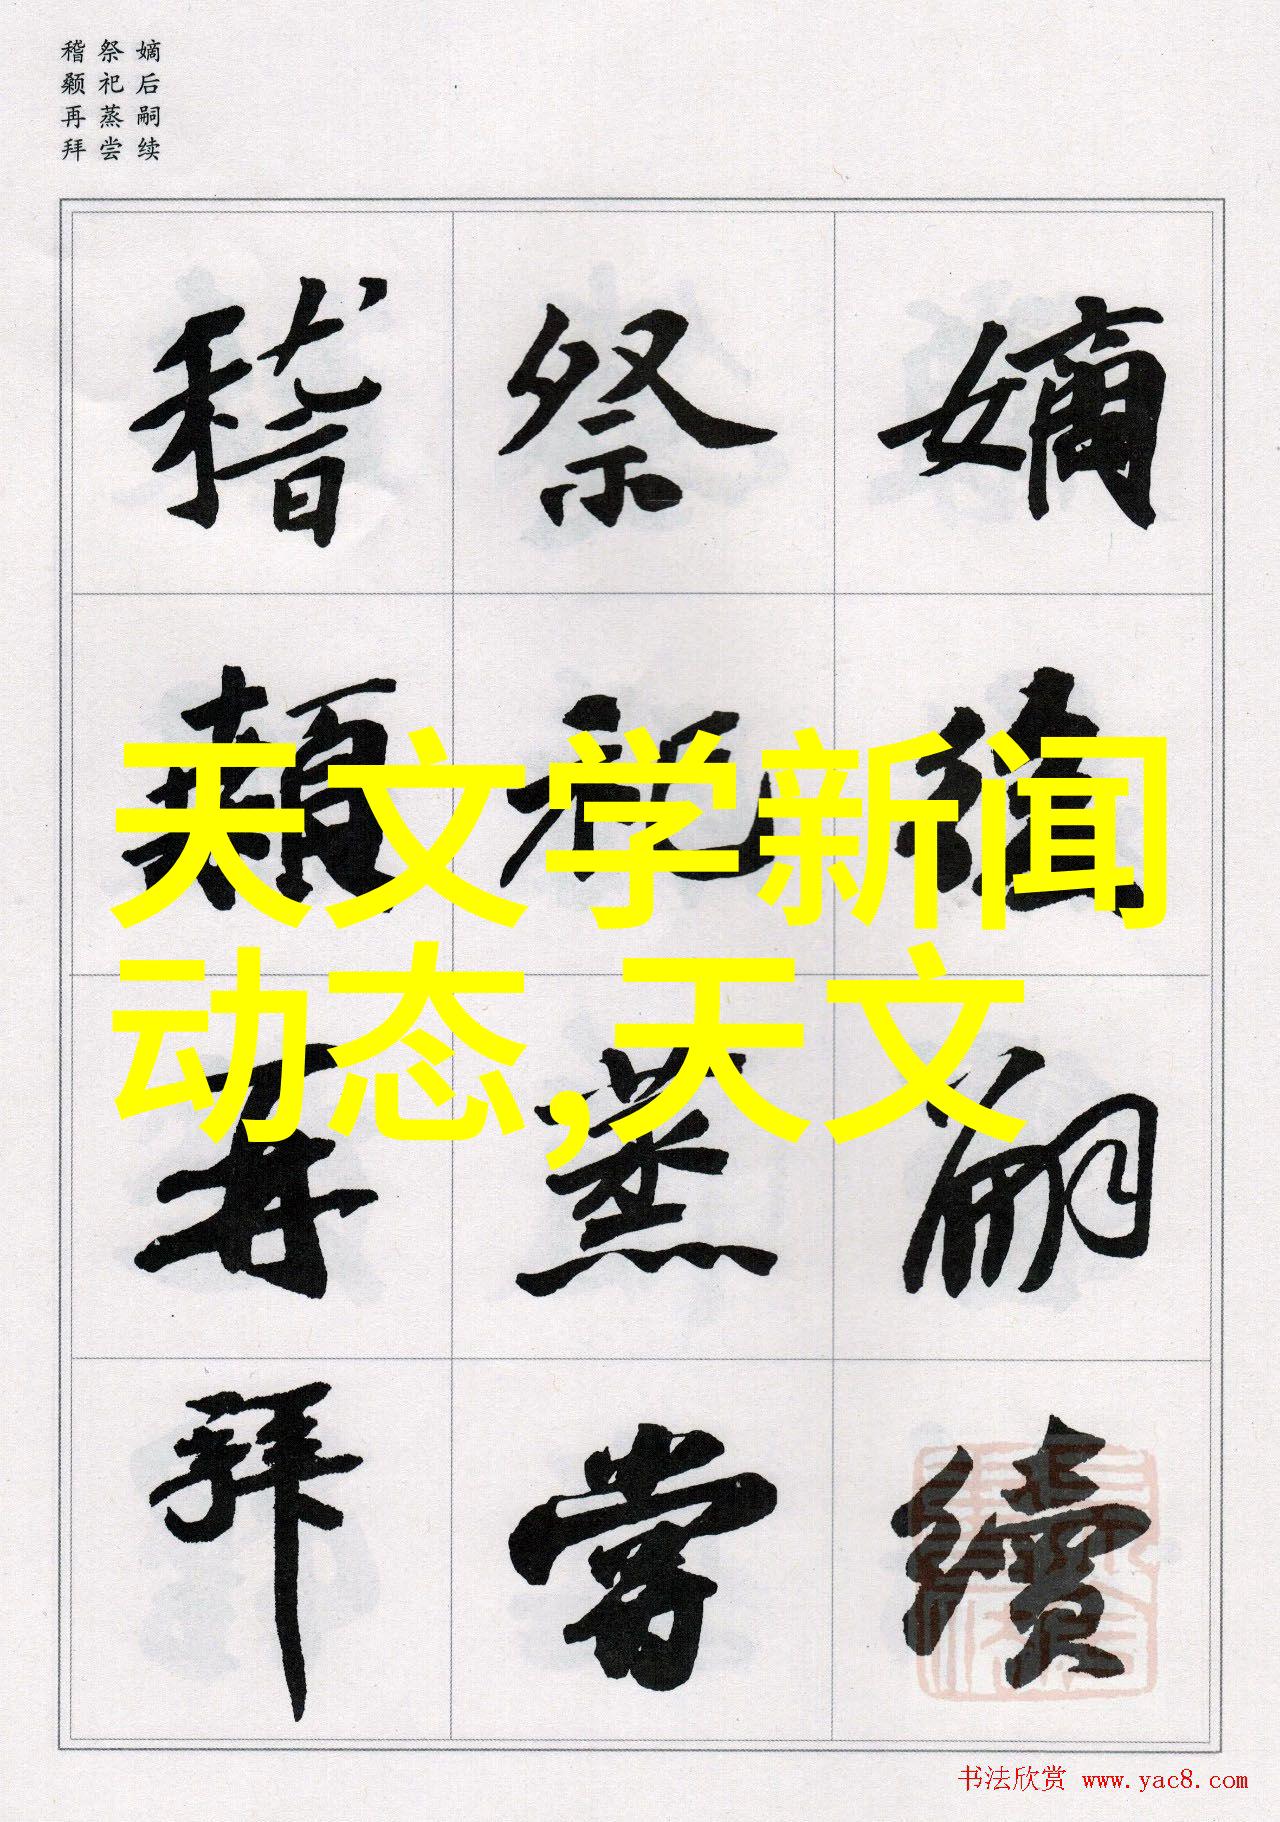 嫡后嗣续
祭祀蒸尝
稽颡再拜
嫡後嗣續
祭祀蒸嘗
稽顙再拜
天文学新闻
动态,天文
书法欣赏 www.yac8.com